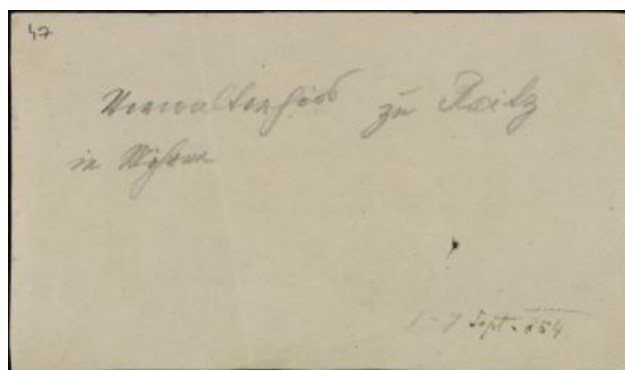 47
Verwalterhaus zu Raitz
in Mähren
1-7 Sept. 854